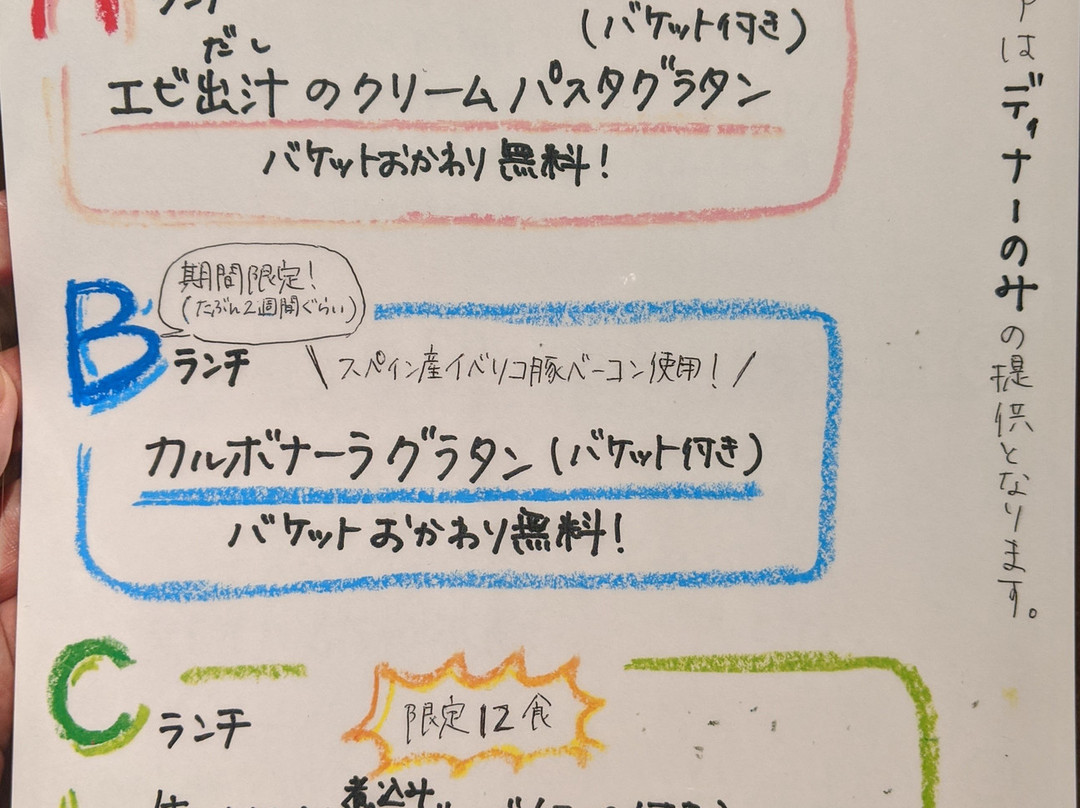 ランチ
(バケット付き)
だし
エビ出汁のクリームパスタグラタン
バケットおかわり無料!
B
期間限定!
(たぶん2週間ぐらい)
ランチ
\ スペイン産イベリコ豚ベーコン使用! /
カルボナーラグラタン(バケット付き)
バケットおかわり無料!
C
ランチ
限定12食
煮込み
はディナーのみの提供となります。